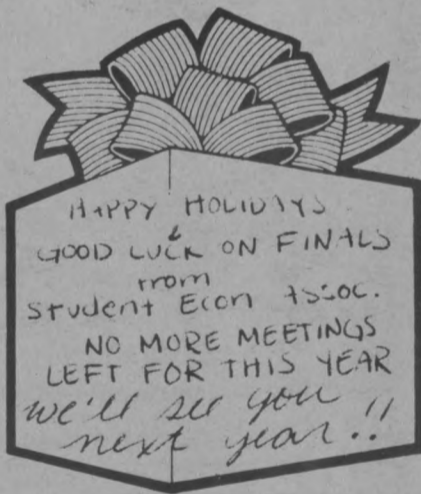 HAPPY HOLIDAYS
&
GOOD LUCK ON FINALS
from
Student Econ Assoc.
NO MORE MEETINGS
LEFT FOR THIS YEAR
we'll see you
next year!!